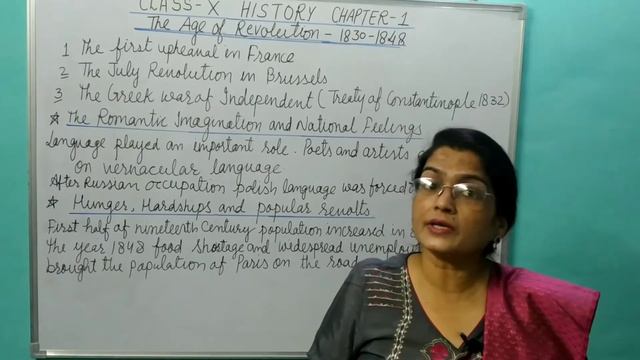 CLASS-X HISTORY CHAPTER-1
The Age of Revolution - 1830-1848
1 The first upheaval in France
2 The July Revolution in Brussels
3 The Greek war of Independent (Treaty of Constantinople 1832)
* The Romantic Imagination and National Feelings
Language played an important role. Poets and artists
on vernacular language
After Russian occupation polish language was forced
* Hunger, Hardships and popular revolts
First half of nineteenth Century population increased in
The year 1848 food shortage and widespread
brought the population of Paris on the road